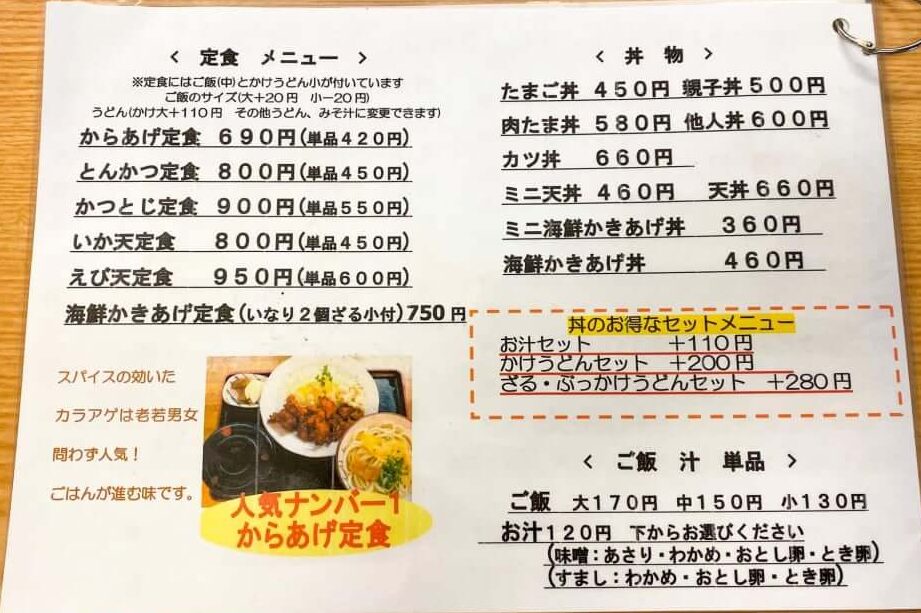 < 定食 メニュー >
※定食にはご飯(中)とかけうどん小が付いています
ご飯のサイズ(大+20円 小ー20円)
うどん(かけ大+110円 その他うどん、みそ汁に変更できます)
からあげ定食 690円(単品420円)
とんかつ定食 800円(単品450円)
かつとじ定食 900円(単品550円)
いか天定食 800円(単品450円)
えび天定食 950円(単品600円)
海鮮かきあげ定食(いなり2個ざる小付)750円
スパイスの効いた
カラアゲは老若男女
問わず人気!
ごはんが進む味です。
人気ナンバー1
からあげ定食
< 丼 物 >
たまご丼 450円 親子丼500円
肉たま丼 580円 他人丼600円
カツ丼 660円
ミニ天丼 460円 天丼660円
ミニ海鮮かきあげ丼 360円
海鮮かきあげ丼 460円
丼のお得なセットメニュー
お汁セット +110円
かけうどんセット +200円
ざる・ぶっかけうどんセット +280円
< ご飯 汁 単品 >
ご飯 大170円 中150円 小130円
お汁120円 下からお選びください
(味噌:あさり・わかめ・おとし卵・とき卵)
(すまし:わかめ・おとし卵・とき卵)